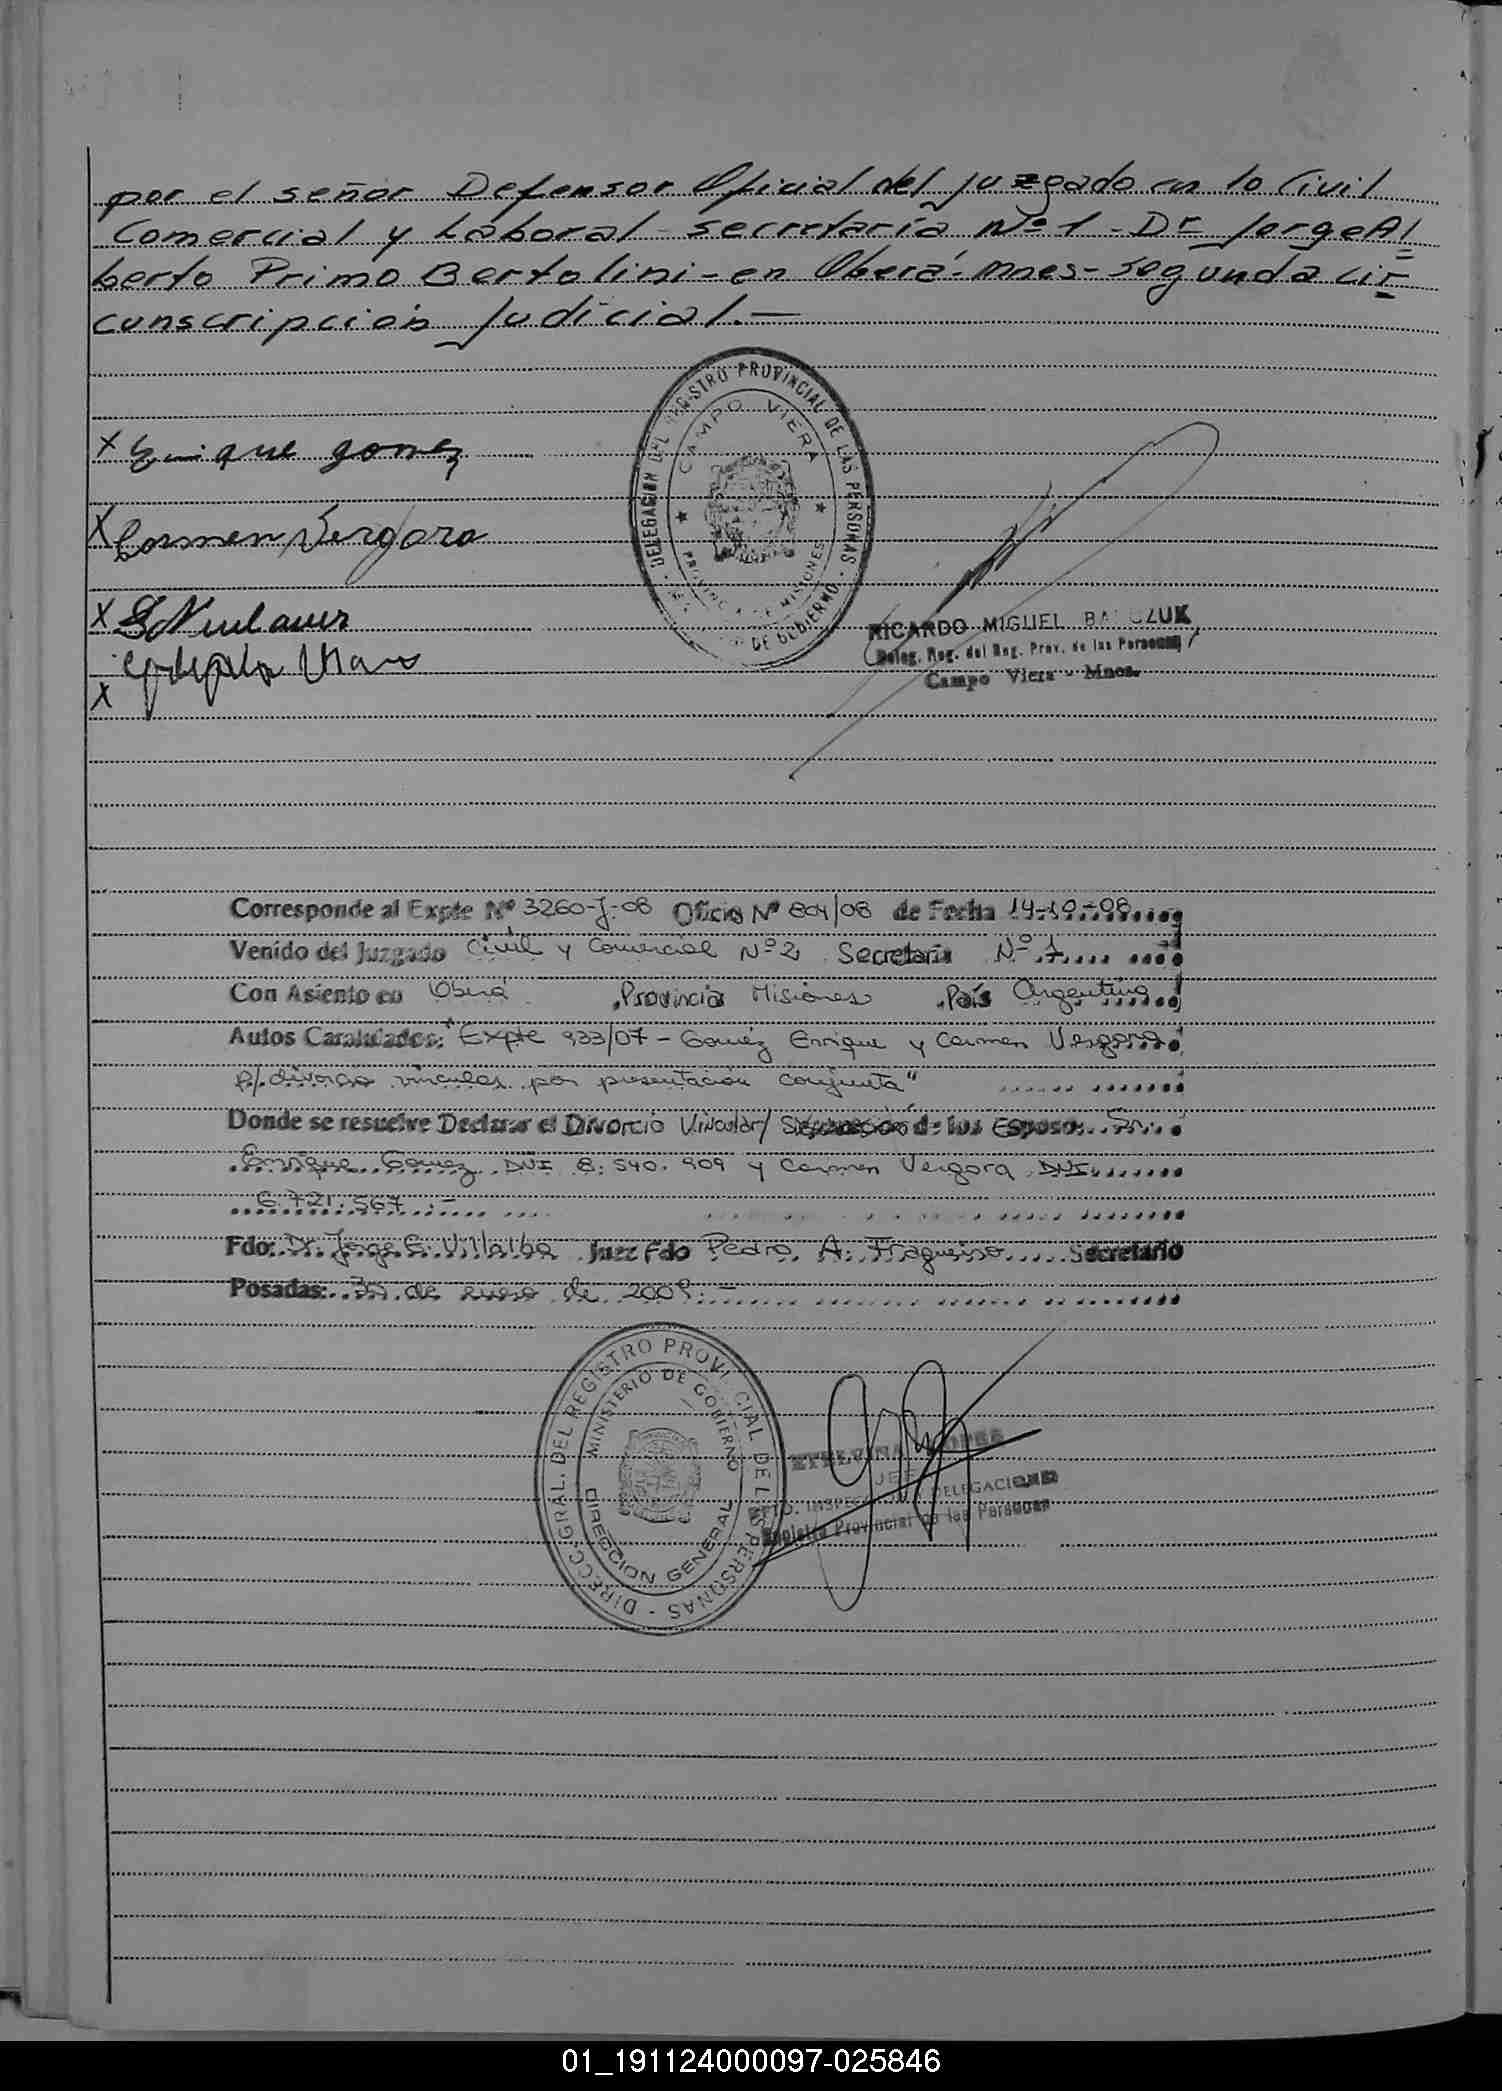 por el señor Defensor Oficial del juzgado en lo Civil
Comercial y Laboral - secretaría Nº 1 - Dr Jorge Al
berto Primo Bertolini - en Oberá - Mnes - segunda cir
cunscripción judicial. —
DELEGACION DEL REGISTRO PROVINCIAL DE LAS PERSONAS
CAMPO VIERA
PROVINCIA DE MISIONES
DE GOBIERNO
X Enrique gomez
X Carmen Vergara
X
X
RICARDO MIGUEL
Deleg. Reg. del Reg. Prov. de las Personas
Campo Viera - Mnes.
Corresponde al Expte Nº 3260-J-08 Oficio Nº 804/08 de Fecha 14-10-08
Venido del Juzgado Civil y Comercial Nº 2 Secretaría Nº 1
Con Asiento en Oberá, Provincia Misiones, País Argentina
Autos Caratulados: "Expte 933/07 - Gomez Enrique y Carmen Vergara
p/ divorcio vincular por presentación conjunta"
Donde se resuelve Declarar el Divorcio Vincular/ Separación de los Esposos Sr.
Enrique Gomez DNI 8.540.909 y Carmen Vergara DNI
6.721.567.-
Fdo: Dr. Jorge E. Villalba Juez Fdo Pedro A. Fragueiro Secretario
Posadas: de enero de 2009.-
DIRECC. GRAL. DEL REGISTRO PROVINCIAL DE LAS PERSONAS
MINISTERIO DE GOBIERNO
DIRECCION GENERAL
ETELVINA
JEFE
DPTO. INSPECCION DELEGACIONES
Registro Provincial de las Personas
01_191124000097-025846